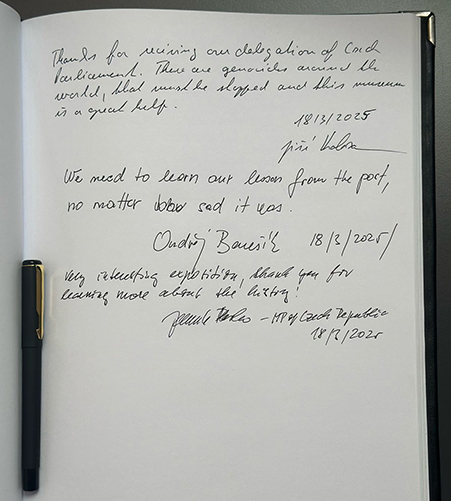 Thanks for reciving our delegation of Czech
Parliament. There are genocides around the
world, that must be stopped and this museum
is a great help.
18/3/2025
Jiří
We need to learn our lesson from the past,
no matter how sad it was.
Ondřej 18/3/2025
Very interesting exposition, thank you for
learning more about the history!
- MP of Czech Republic
18/3/2025